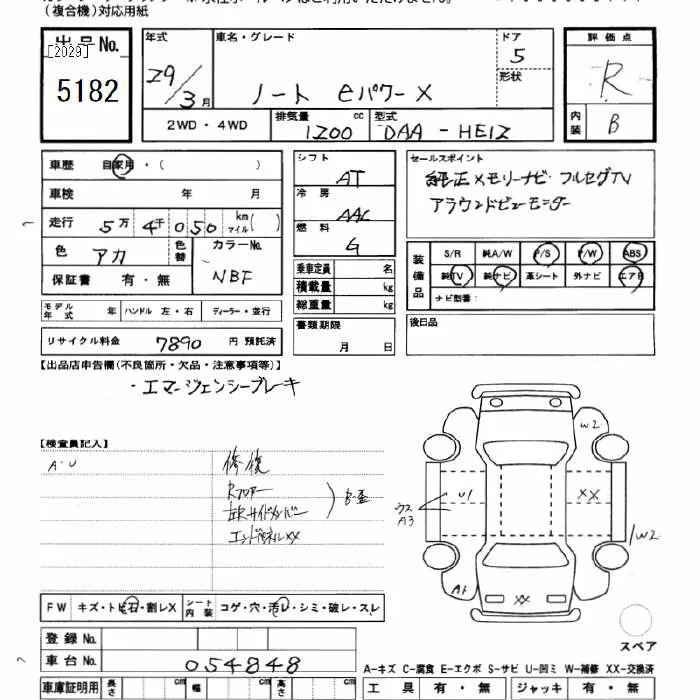 (複合機)対応用紙
出品No.
[2029]
5182
年式
29/3月
車名・グレード
ノート eパワーX
ドア
5
形状
評価点
R
内装
B
2WD・4WD
排気量
1200
cc
型式
DAA-HE12
車歴 自家用・( )
車検 年 月
走行 5万 4千 0 5 0 km マイル( )
色 アカ
色替
カラーNo.
NBF
保証書 有・無
シフト
AT
冷房
AAC
燃料
G
乗車定員 名
積載量 kg
総重量 kg
セールスポイント
純正メモリーナビ・フルセグTV
アラウンドビューモニター
装備品
S/R 純A/W P/S P/W ABS
純TV 純ナビ 革シート 外ナビ エアB
ナビ型番:
モデル年式 年 ハンドル 左・右 ディーラー・並行
リサイクル料金 7890 円 預託済
書類期限
月 日
後日品
【出品店申告欄(不良箇所・欠品・注意事項等)】
・エマージェンシーブレーキ
【検査員記入】
A・U
修復
Rフロアー
左Rサイドメンバー
エンドパネルXX
W2
U1
XX
A3
W2
A1
XX
FW キズ・トビ石・割レX
シート内装 コゲ・穴・汚レ・シミ・破レ・スレ
登録No.
車台No.
054848
スペア
A-キズ C-腐食 E-エクボ S-サビ U-凹ミ W-補修 XX-交換済
車庫証明用 長さ cm 幅 cm 高さ cm
工具 有・無 ジャッキ 有・無